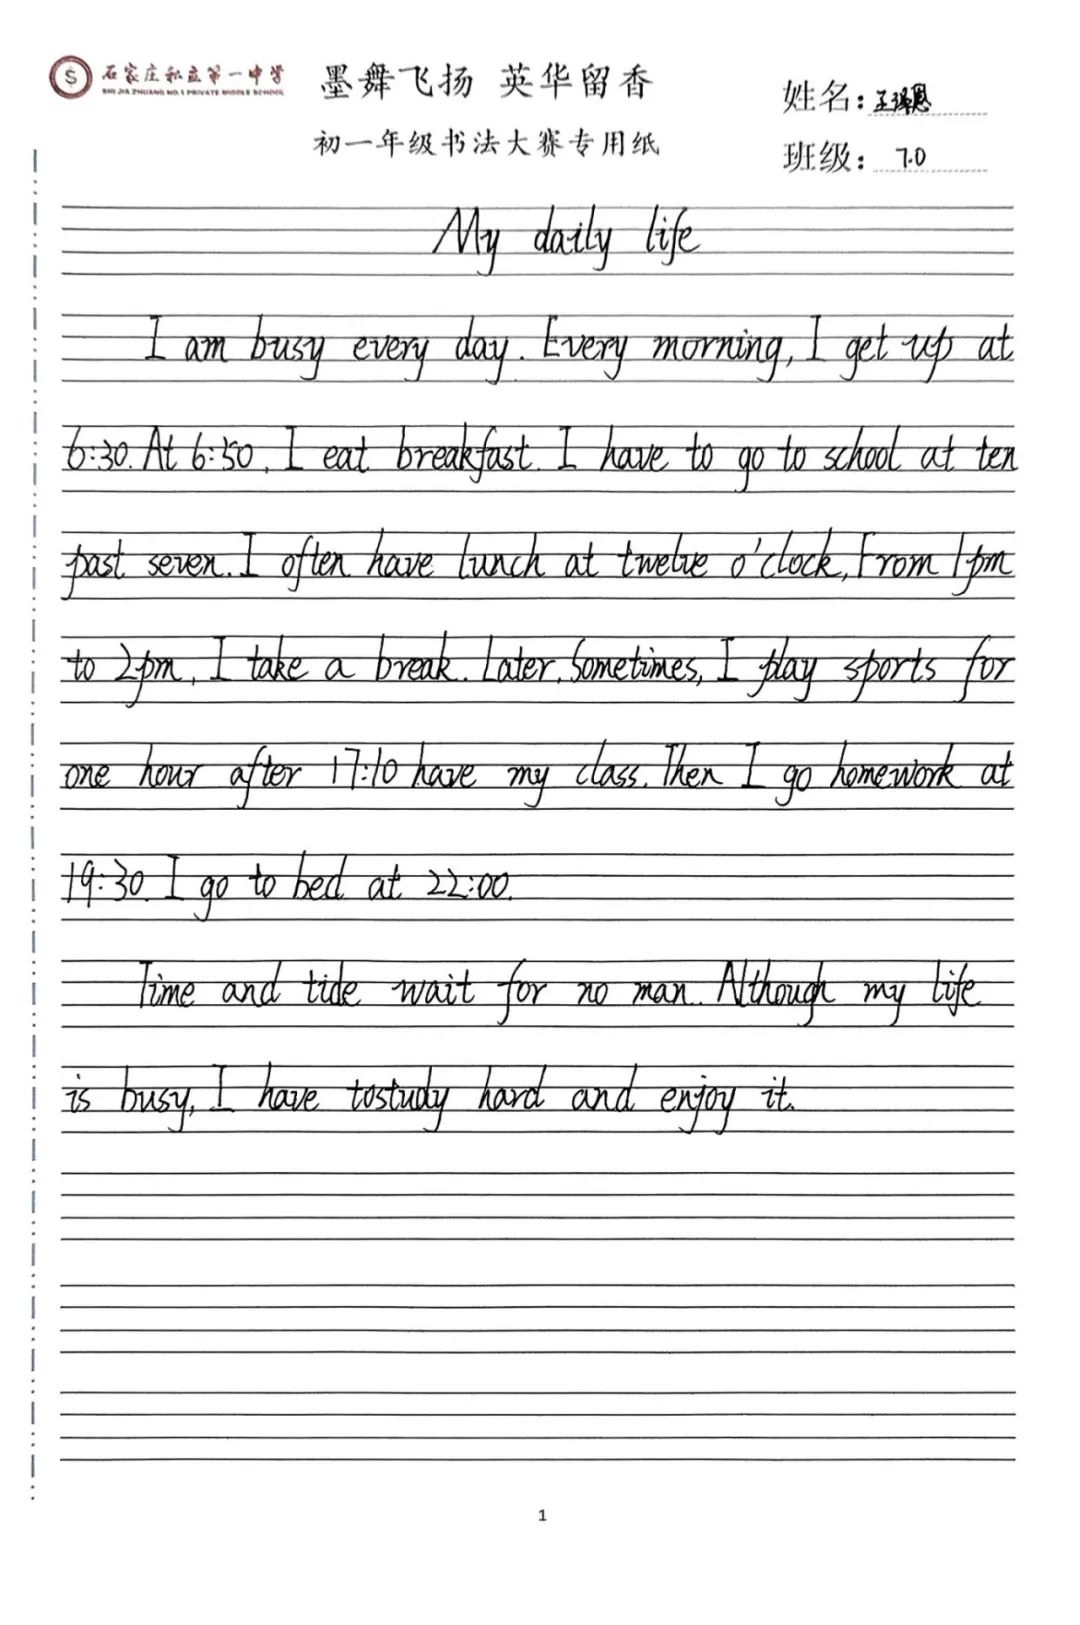 石家庄私立第一中学
SHI JIA ZHUANG NO.1 PRIVATE MIDDLE SCHOOL
墨舞飞扬 英华留香
初一年级书法大赛专用纸
姓名: 王泽恩
班级: 7.0
My daily life
I am busy every day. Every morning, I get up at
6:30. At 6:50, I eat breakfast. I have to go to school at ten
past seven. I often have lunch at twelve o'clock, From 1pm
to 2pm, I take a break. Later, Sometimes, I play sports for
one hour after 17:10 have my class. Then I go homework at
19:30. I go to bed at 22:00.
Time and tide wait for no man. Although my life
is busy, I have tostudy hard and enjoy it.
1